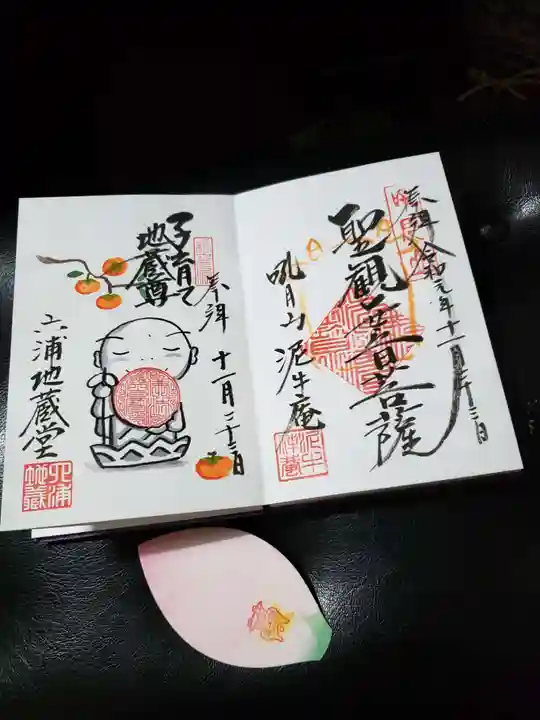 奉拝 令和元年十一月二十三日
聖観世音菩薩
吼月山 泥牛庵
泥牛庵
奉拝 十一月二十三日
子育て
地蔵尊
六浦地蔵堂
六浦地蔵